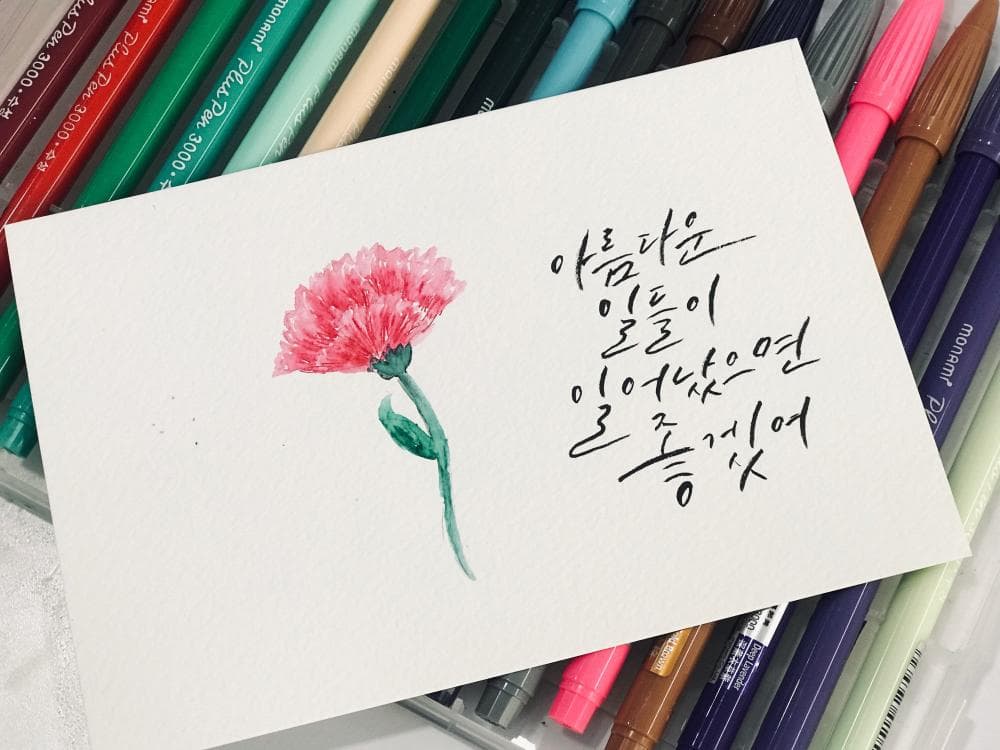 Plus Pen 3000 • 수성
monami Plus Pen 3000 • 수성
monami Plus Pen 3000 •
monami Plus Pen
monami
monami
아름다운
일들이
일어났으면
좋겠어
monami Pl
Brown
Deep Lavender